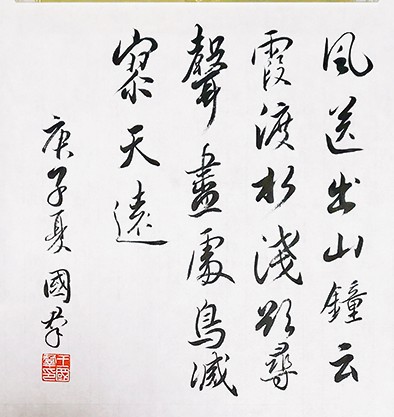 风送出山鐘云
霞渡水淺欲尋
聲盡處鳥滅
寥天遠
庚子夏國